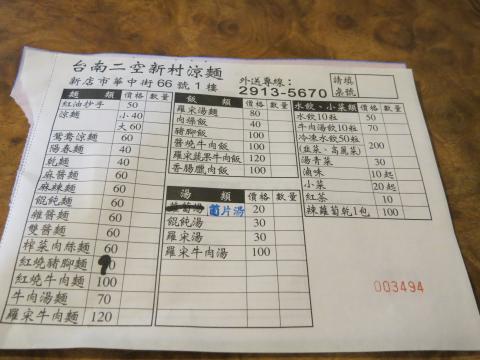 台南二空新村涼麵
新店市華中街66號1樓
外送專線：
2913-5670
請填
桌號
麵 類 價格 數量
紅油抄手 50
涼麵 小40
大60
鴛鴦涼麵 60
陽春麵 30
乾麵 40
麻醬麵 60
麻辣麵 60
餛飩麵 60
雞醬麵 60
雙醬麵 60
榨菜肉絲麵 60
紅燒豬腳麵
紅燒牛肉麵 100
牛肉湯麵 70
羅宋牛肉麵 120
飯 類 價格 數量
羅宋湯麵 80
肉絲飯 40
豬腳飯 100
醬燒牛肉飯 100
羅宋蔬果牛肉飯 120
香腸臘肉飯 100
湯 類 價格 數量
蘿蔔湯 筍片湯 20
餛飩湯 30
羅宋湯 30
羅宋牛肉湯 100
水餃、小菜類 價格 數量
水餃10粒 50
牛肉湯餃10粒 70
冷凍水餃50粒
(韭菜、高麗菜) 200
湯青菜 30
滷味 10起
小菜 20起
紅茶 10
辣蘿蔔乾1包 100
003494